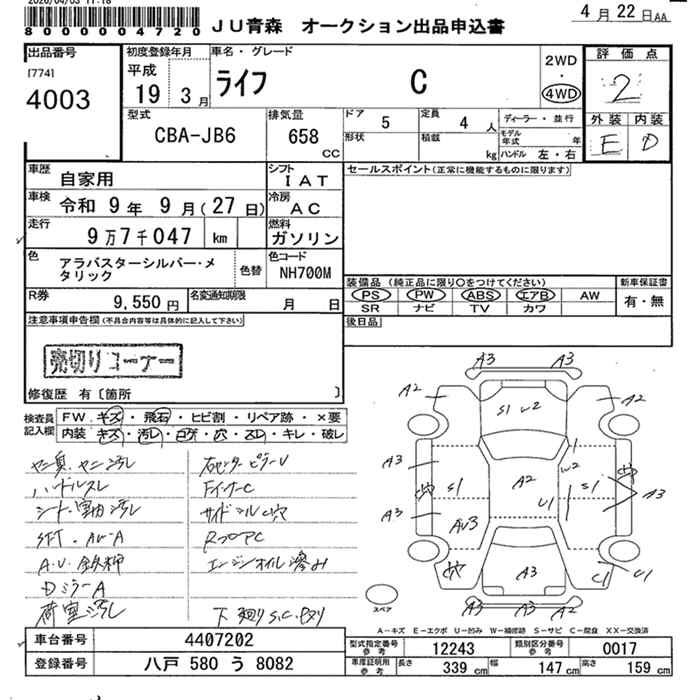 JU青森 オークション出品申込書
4月22日AA
8000004720
出品番号
[774]
4003
初度登録年月
平成
19 3月
車名・グレード
ライフ C
2WD
・
4WD
評価点
2
外装 内装
E D
型式
CBA-JB6
排気量
658
CC
ドア
5
定員
4人
形状
積載
kg
ディーラー・並行
モデル年式 年
ハンドル 左・右
車歴
自家用
シフト
IAT
セールスポイント(正常に機能するものに限ります)
車検
令和 9年 9月(27日)
冷房
AC
走行
9万7千047 km
燃料
ガソリン
色
アラバスターシルバー・メ
タリック
色替
色コード
NH700M
R券
9,550円
名変通知期限
月 日
装備品(純正品に限り○をつけてください)
PS PW ABS エアB AW
SR ナビ TV カワ
新車保証書
有・無
後日品
注意事項申告欄(不具合内容等は具体的に記入して下さい)
売切りコーナー
修復歴 有〔箇所 〕
検査員
記入欄
FW キズ・飛石・ヒビ割・リペア跡・×要
内装 キズ・汚レ・コゲ・穴・スレ・キレ・破レ
ヤニ臭、ヤニ汚レ
ハンドルスレ
シート・室内汚レ
A.V.鉄粉
DミラーA
荷室汚レ
右センターピラーU
FインナーC
RフロアC
エンジンオイル滲み
下廻りS.C.
A3 A3
A2 A2
S1 U2
A3
S1
A2
U2
S1
U1
A3
A3
AU3
A3
C1 U1
A3 A3 A2
スペア
A-キズ E-エクボ U-凹み W-補修跡 S-サビ C-腐食 XX-交換済
車台番号
4407202
登録番号
八戸 580 う 8082
型式指定番号
参考
12243
類別区分番号
参考
0017
車庫証明用
参考
長さ
339 cm
幅
147 cm
高さ
159 cm